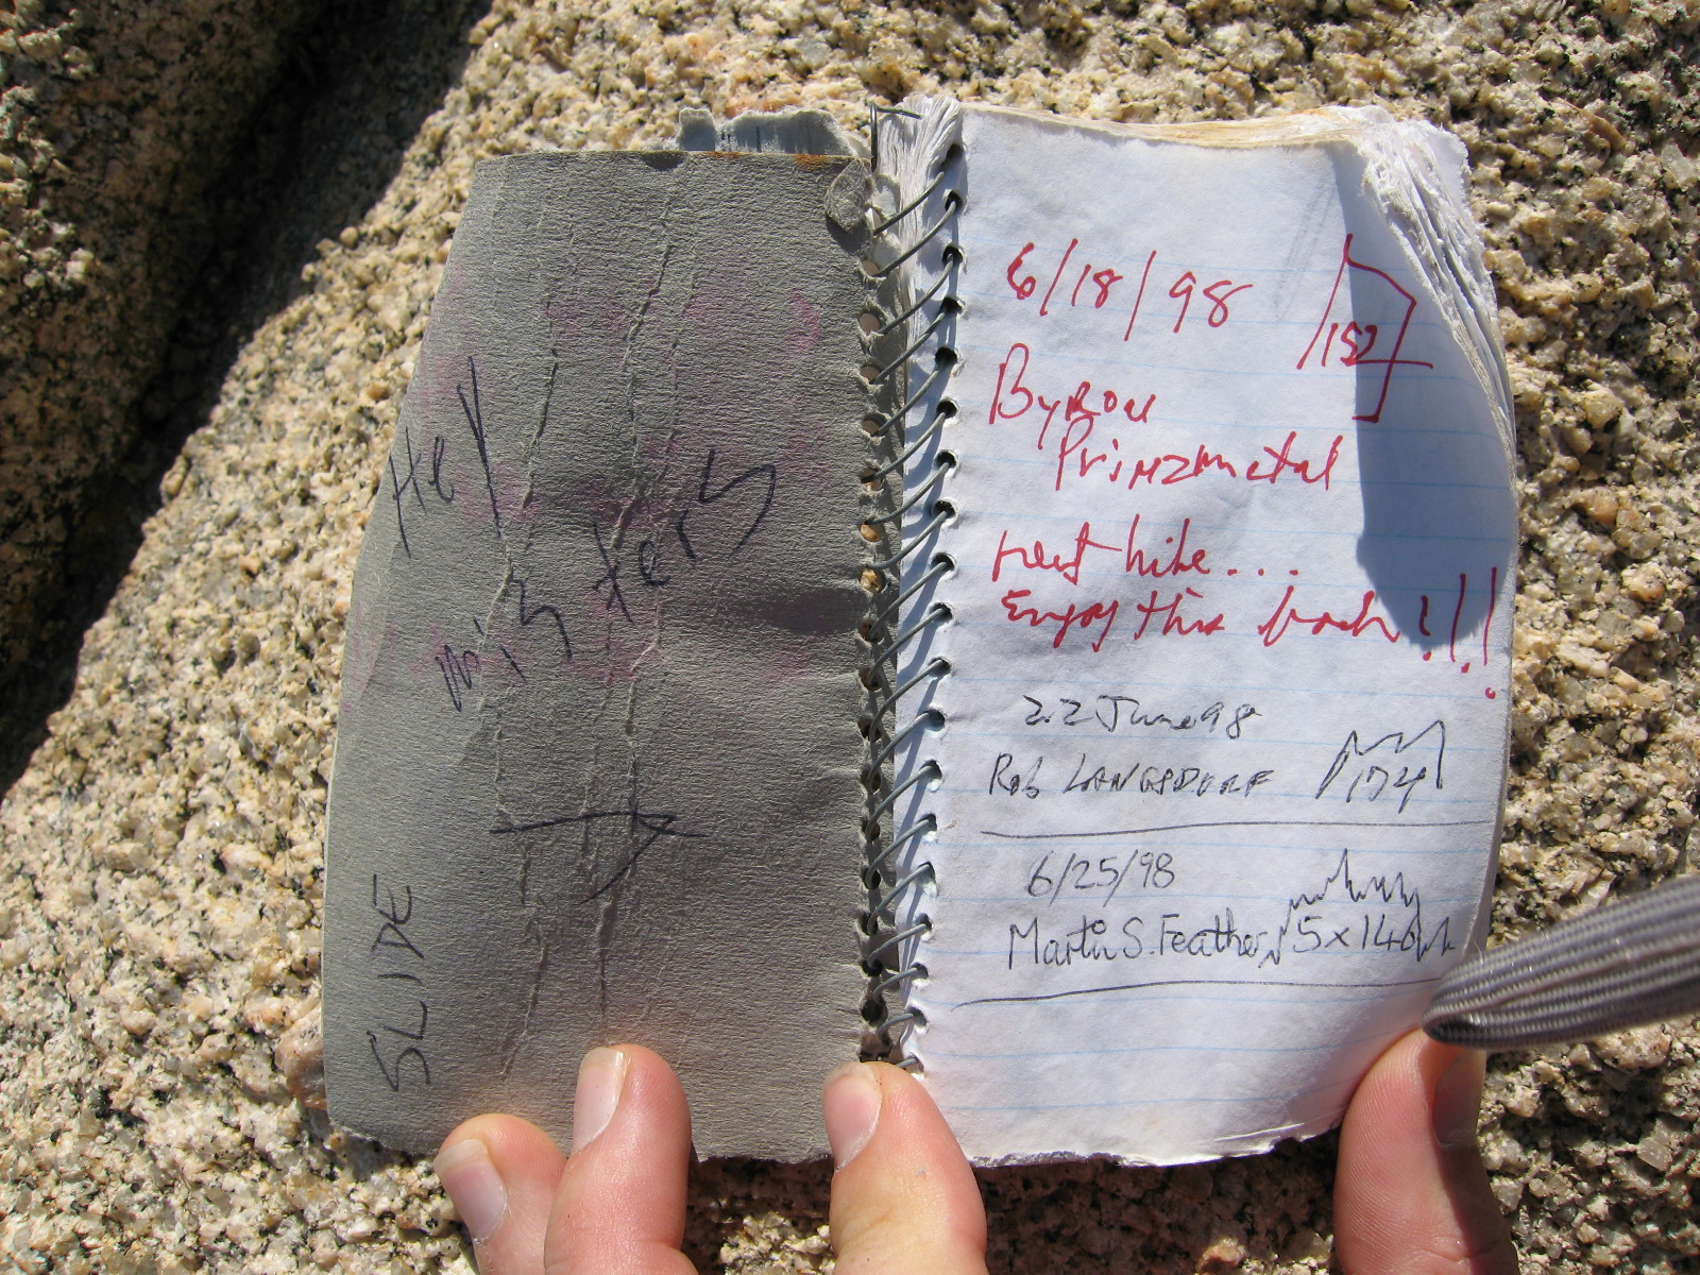 Hey
misters
SLIDE
6/18/98
152
Byron
Prinzmetal
neat hike...
Enjoy this book!!!
22 June 98
Rob LANGSDORF 174
6/25/98
Martin S. Feather 5x140